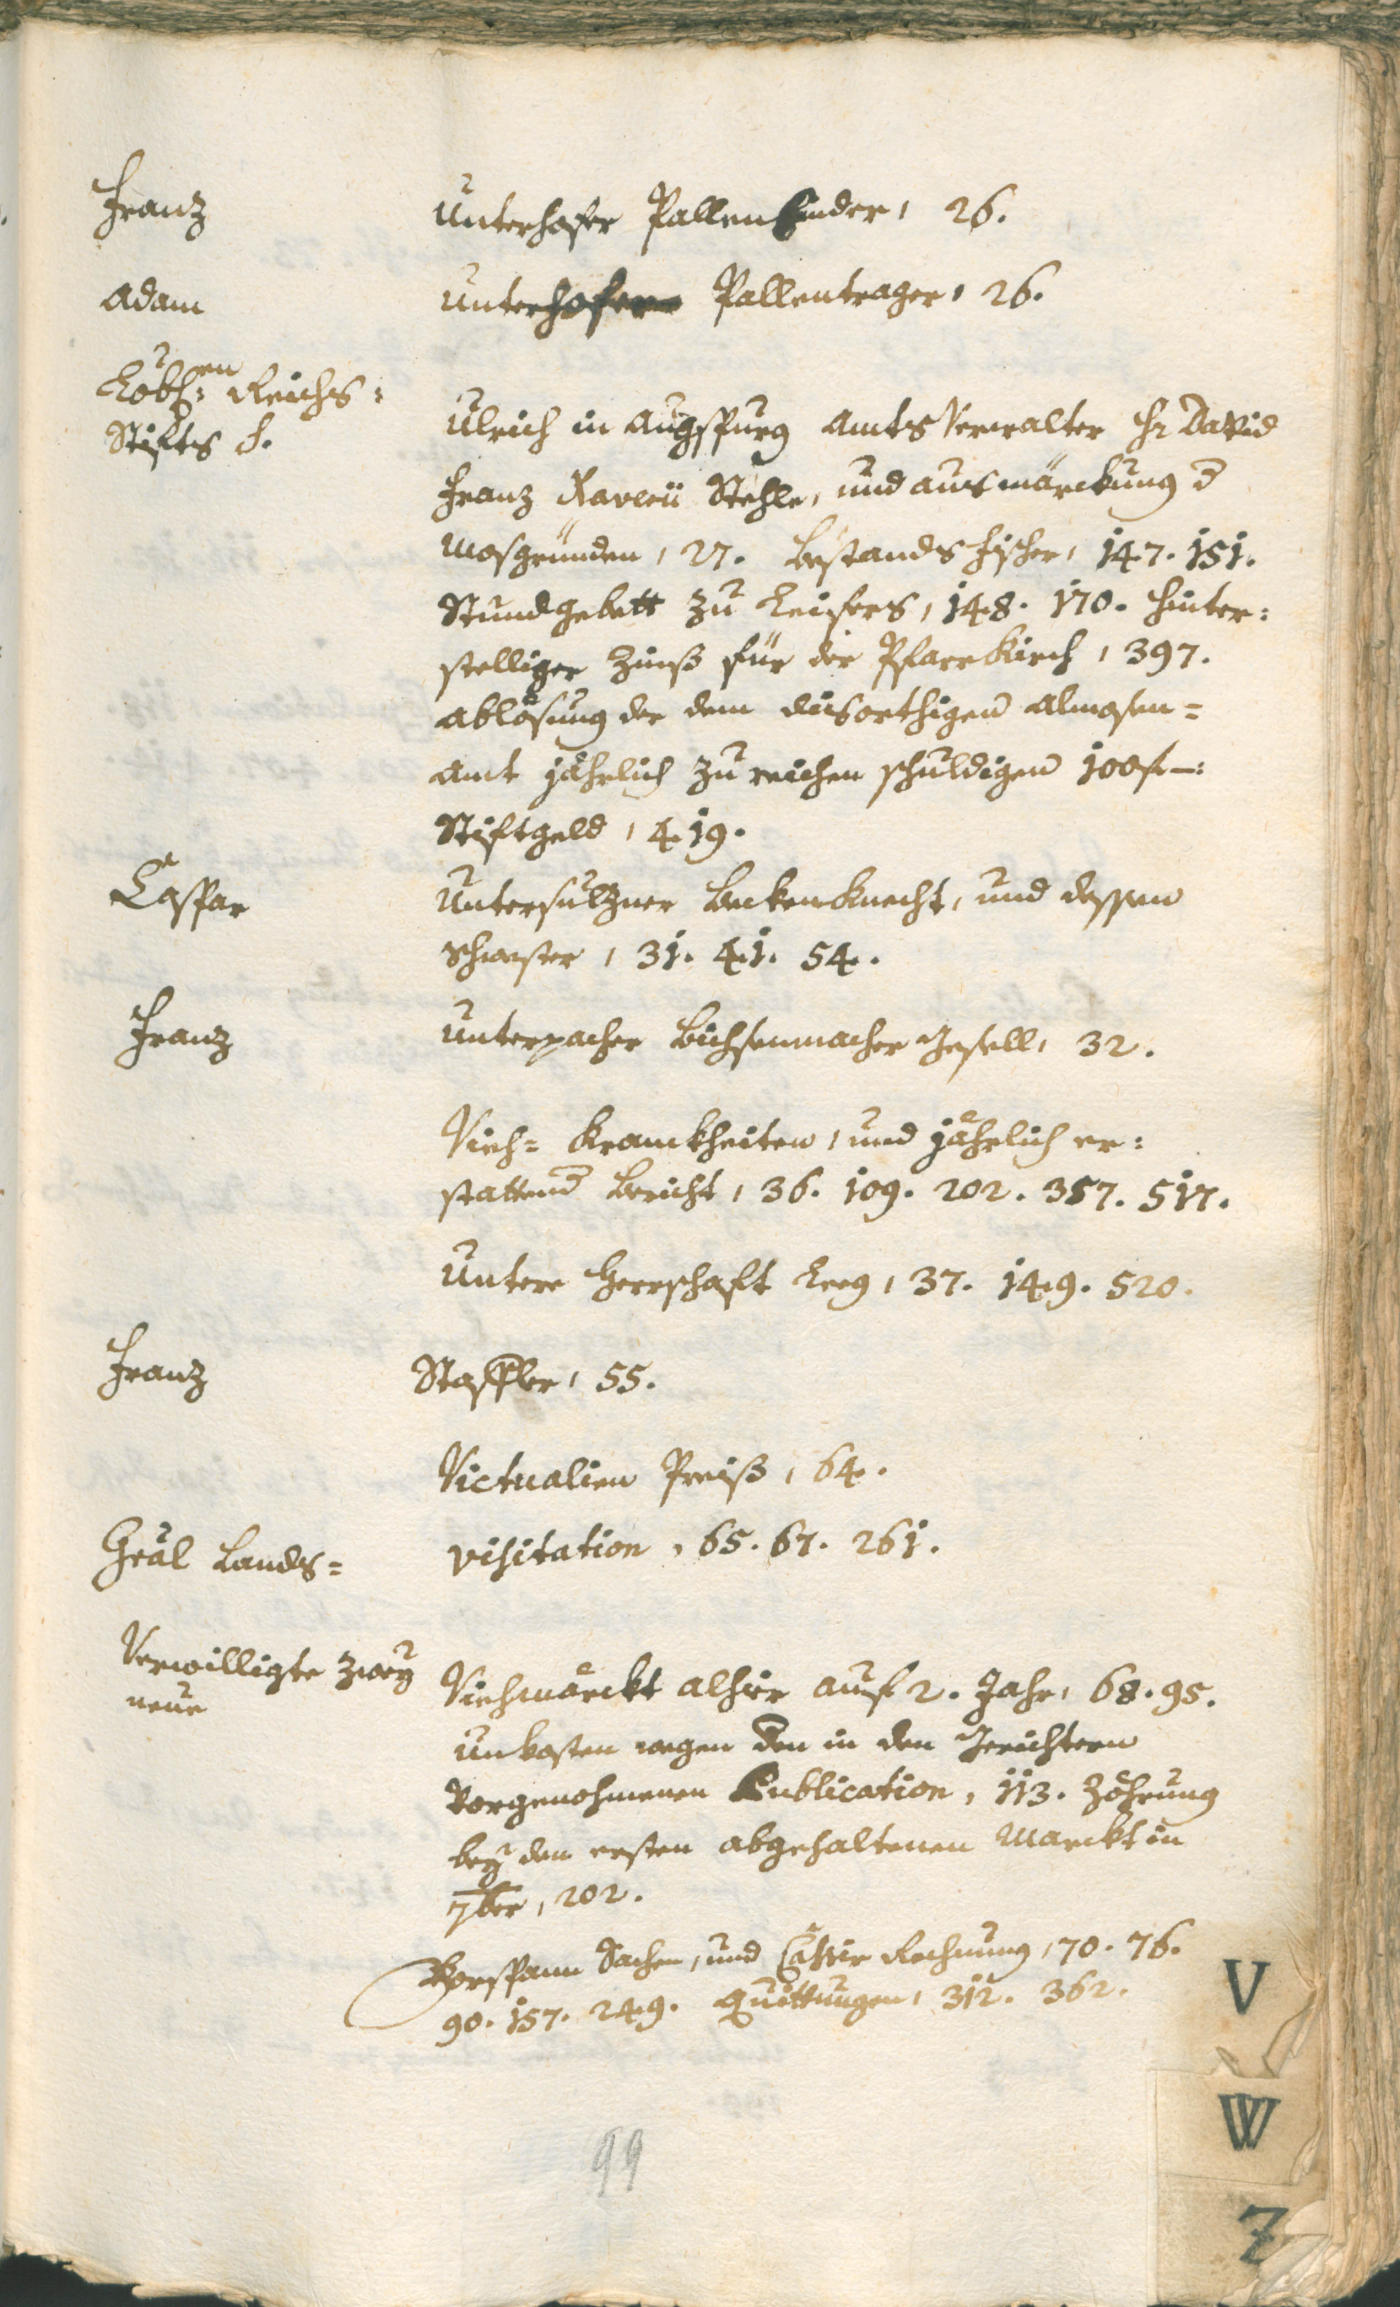 Franz Unterhofer Pallenbinder, 26.
Adam Unterhofer Pallentrager, 26.
Löbl:en Reichs:
Stifts S. Ulrich in Augspurg Amts Verwalter Hr David
Franz Xaveri Stehle, und ausmärckung d
Mosgründen, 27. Bestands Fischer, 147. 151.
Stundgebett zu Leifers, 148. 170. Hinter:
stelliger Zinß für die Pfarrkirch, 397.
Ablösung der dem diisorthigen Almosen=
Amt jährlich zu reichen schuldigen 100 f —:
Stiftgeld, 419.
Caspar Untersulzner Beckenknecht, und dessen
Schwester, 31. 41. 54.
Franz Unterpacher Bichsenmacher Gesell, 32.
Vieh= Kranckheiten, und jährlich er:
stattend Bericht, 36. 109. 202. 357. 517.
Untere Herrschaft Leeg, 37. 149. 520.
Franz Staffler, 55.
Victualien Preiß, 64.
Gral Lands= visitation, 65. 67. 261.
Verwilligte zwey
neue Viehmärckt alhier auf 2. Jahr, 68. 95.
Unkosten wegen den in den Gerichtern
Vorgenohmenen Publication, 113. Zöhrung
bey dem ersten abgehaltenen Marckt in
7ber, 202.
Vorspann Sachen, und Cassie Rechnung, 70. 76.
90. 157. 249. Quittungen, 312. 362.
V
W
Z
99